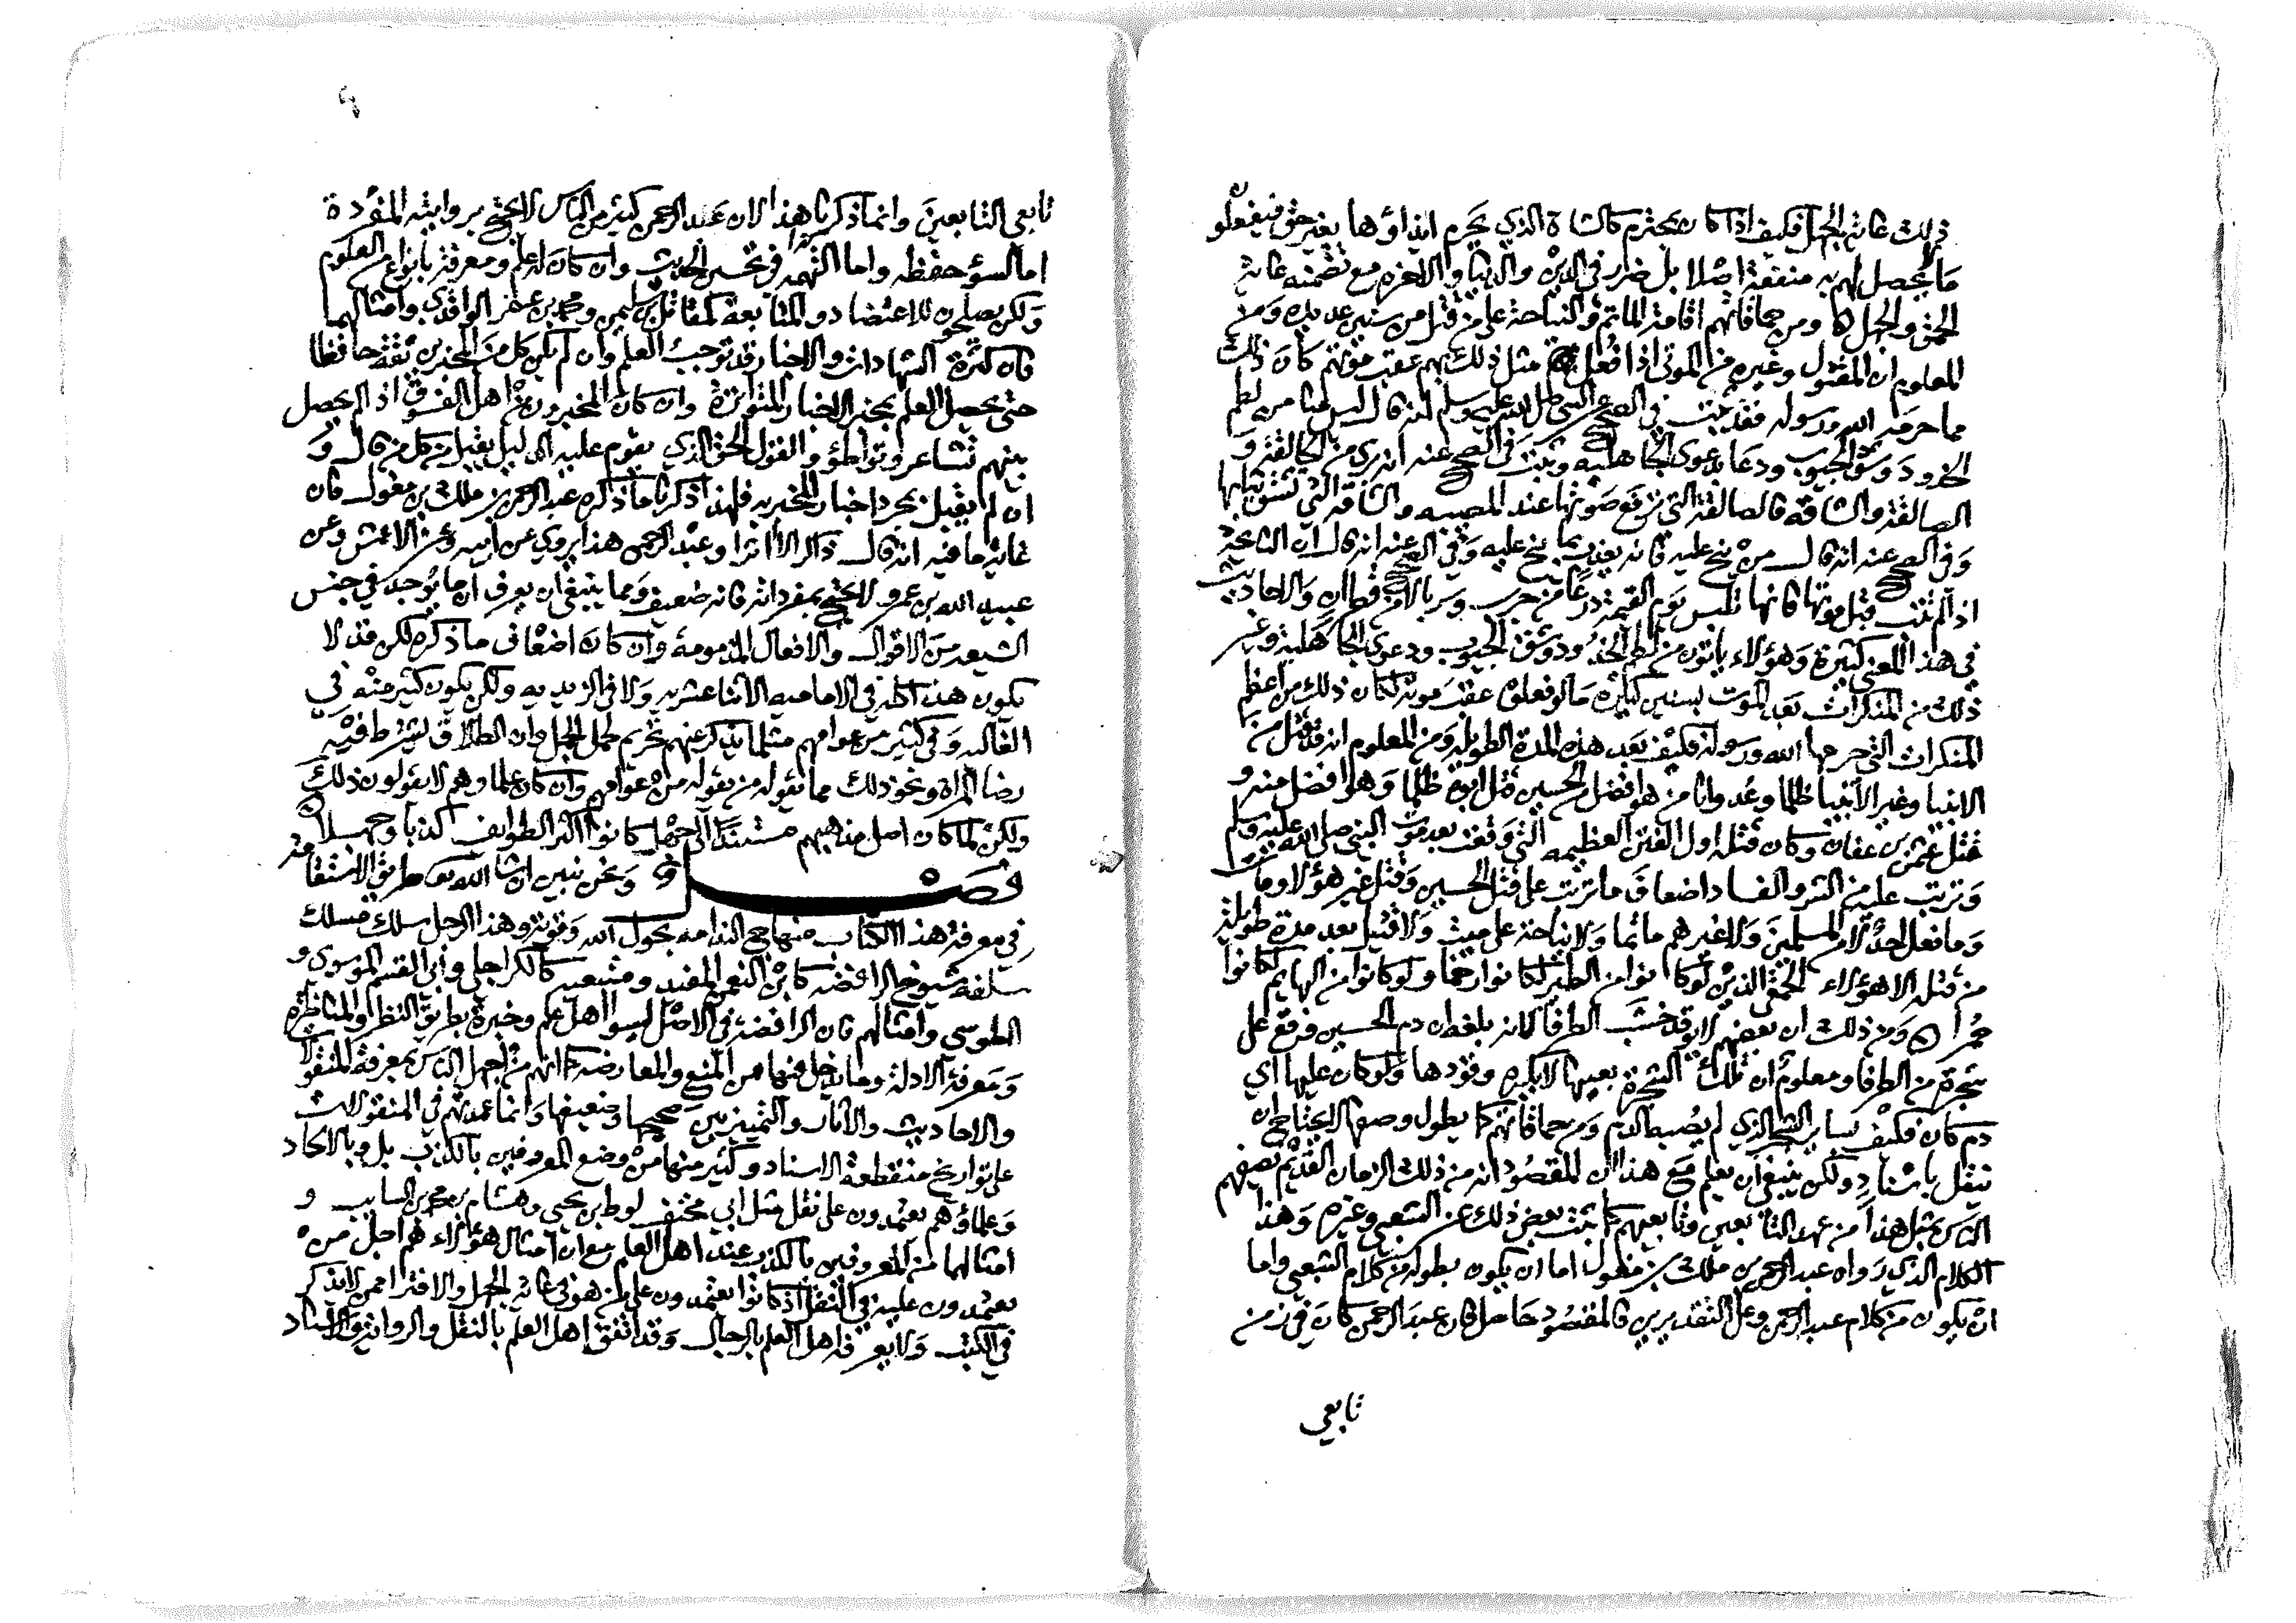 ذلك غاية الجهل فكيف اذا كان بمحترم كالشاة الذي يحرم ايذاؤها بغير حق فيفعلون
ما لا يحصل لهم به منفعة اصلا بل ضرار في الدين والدنيا والاخرة مع تضمنه غاية
الحمق والجهل ومن حماقاتهم اقامة الماتم والنياحة على من قتل من سنين عديدة ومن
المعلوم ان المقتول وغيره من الموتى اذا فعل مثل ذلك بهم عقب موتهم كان ذلك
مما حرمه الله ورسوله فقد ثبت في الصحيح عن النبي صلى الله عليه وسلم انه قال ليس منا من لطم
الخدود وشق الجيوب ودعا بدعوى الجاهليه وثبت في الصحيح عنه انه بري من الحالقة و
الصالقة والشاقه فالصالقة التي ترفع صوتها عند المصيبه والشاقه التي تشق ثيابها
وفي الصحيح عنه انه قال من نيح عليه فانه يعذب بما نيح عليه وفي الصحيح عنه انه قال ان النائحة
اذا لم تتب قبل موتها فانها تلبس يوم القيمة درعا من جرب وسربالا من قطران والاحاديث
في هذا المعنى كثيرة وهؤلاء ياتون من لطم الخدود وشق الجيوب ودعوى الجاهلية وغير
ذلك من المنكرات بعد الموت بسنين كثيرة ما لو فعلوه عقب موته لكان ذلك من اعظم
المنكرات التي حرمها الله ورسوله فكيف بعد هذه المدة الطويلة ومن المعلوم انه قد قتل من
الانبيا وغير الانبيا ظلما وعدوانا من هو افضل من الحسين قتل ابوه ظلما وهو افضل منه و
قتل عثمن بن عفان وكان قتله اول الفتن العظيمه التي وقعت بعد موت النبي صلى الله عليه وسلم
وترتب عليه من الشر والفساد اضعاف ما ترتب على قتل الحسين وقتل غير هؤلا وما
وما فعل احد لا من المسلمين ولا غيرهم ماتما ولا نياحة على ميت ولا قتيل بعد مدة طويلة
من قتله الا هؤلاء الحمقى الذين لو كانوا من الطير لكانوا رخما ولو كانوا من البهايم لكانوا
حمرا ومن ذلك ان بعضهم لا يوقد خشب الطرفا لانه بلغه ان دم الحسين وقع على
شجرة من الطرفا ومعلوم ان تلك الشجرة بعينها لا يكره وقودها ولو كان عليها اي
دم كان فكيف بساير الشجر الذي لم يصبه الدم ومن حماقاتهم ما يطول وصفها لا يحتاج ان
تنقل باسناد ولكن ينبغي ان يعلم مع هذا ان المقصود انه من ذلك الزمان القديم يصفهم
الناس بمثل هذا من عهد التابعين وتابعيهم كما ثبت بعض ذلك عن الشعبي وغيره وهذا
الكلام الذي رواه عبد الرحمن بن ملك بن مغول اما ان يكون بطوله من كلام الشعبي واما
ان يكون من كلام عبد الرحمن وعلى التقديرين فالمقصود حاصل فان عبد الرحمن كان في زمن
تابعي
تابعي التابعين وانما ذكرنا هذا لان عبد الرحمن كثير من الناس لا يحتج بروايته المفردة
اما لسؤ حفظه واما لتهمه في تحسين الحديث وان كان له علم ومعرفة بانواع من العلوم
ولكن يصلحون للاعتضاد والمتابعة كمقاتل بن سليمن ومحمد بن عمر الواقدي وامثالهما
فان كثرة الشهادات والاخبار قد توجب العلم وان لم يكن كل من المخبرين ثقة حافظا
حتى يحصل العلم بمخبر الاخبار المتواترة وان كان المخبرون من اهل الفسوق اذا لم يحصل
بينهم تشاعر وتواطؤ والقول الحق الذي يقوم عليه الدليل يقبل من كل من قال و
ان لم يقبل بمجرد اخبار المخبر به فلهذا ذكرنا ما ذكره عبد الرحمن بن ملك بن مغول فان
غاية ما فيه انه قال ذاكرا لا اثرا وعبد الرحمن هذا يروي عن ابيه وعن الاعمش وعن
عبيد الله بن عمر ولا يحتج بمفرداته فانه ضعيف ومما ينبغي ان يعرف ان ما يوجد في جنس
الشيعه من الاقوال والافعال المذمومة وان كان اضعاف ما ذكر لكن قد لا
يكون هذا كله في الاماميه الاثنا عشريه ولا في الزيديه ولكن يكون كثير منه في
الغاليه وفي كثير من عوامهم مثل ما يذكر عنهم من تحريم لحم الجمل وان الطلاق يشترط فيه
رضا المراة ونحو ذلك مما يقوله من يقوله من عوامهم وان كان علماوهم لا يقولون ذلك
ولكن لما كان اصل مذهبهم مستندا الى جهل كانوا اكثر الطوايف كذبا وجهلا
فصـــل ونحن نبين ان شا الله تعالى طريق الاستقامة
في معرفة هذا الكتاب منهاج الندامه بحول الله وقوته وهذا الرجل سلك مسلك
سلفه شيوخ الرافضه كابن النعمن المفيد ومتبعيه كالكراجكي وابي القسم الموسوي و
الطوسي وامثالهم فان الرافضة في الاصل ليسوا اهل علم وخبرة بطريق النظر والمناظرة
ومعرفة الادلة وما يدخل فيها من المنع والمعارضه كما انهم من اجهل الناس بمعرفة المنقولات
والاحاديث والاثار والتمييز بين صحيحها وضعيفها وانما عمدتهم في المنقولات
على تواريخ منقطعة الاسناد وكثير منها من وضع المعروفين بالكذب بل وبالالحاد
وعلماؤهم يعتمدون على نقل مثل ابي مخنف لوط بن يحيى وهشام بن محمد بن السايب و
امثالهما من المعروفين بالكذب عند اهل العلم مع ان امثال هؤلاء هم اجل من
يعتمدون عليه في النقل اذ كانوا يعتمدون على من هو في غاية الجهل والافترا ممن لا يذكر
في الكتب ولا يعرفه اهل العلم بالرجال وقد اتفق اهل العلم بالنقل والرواية والاسناد